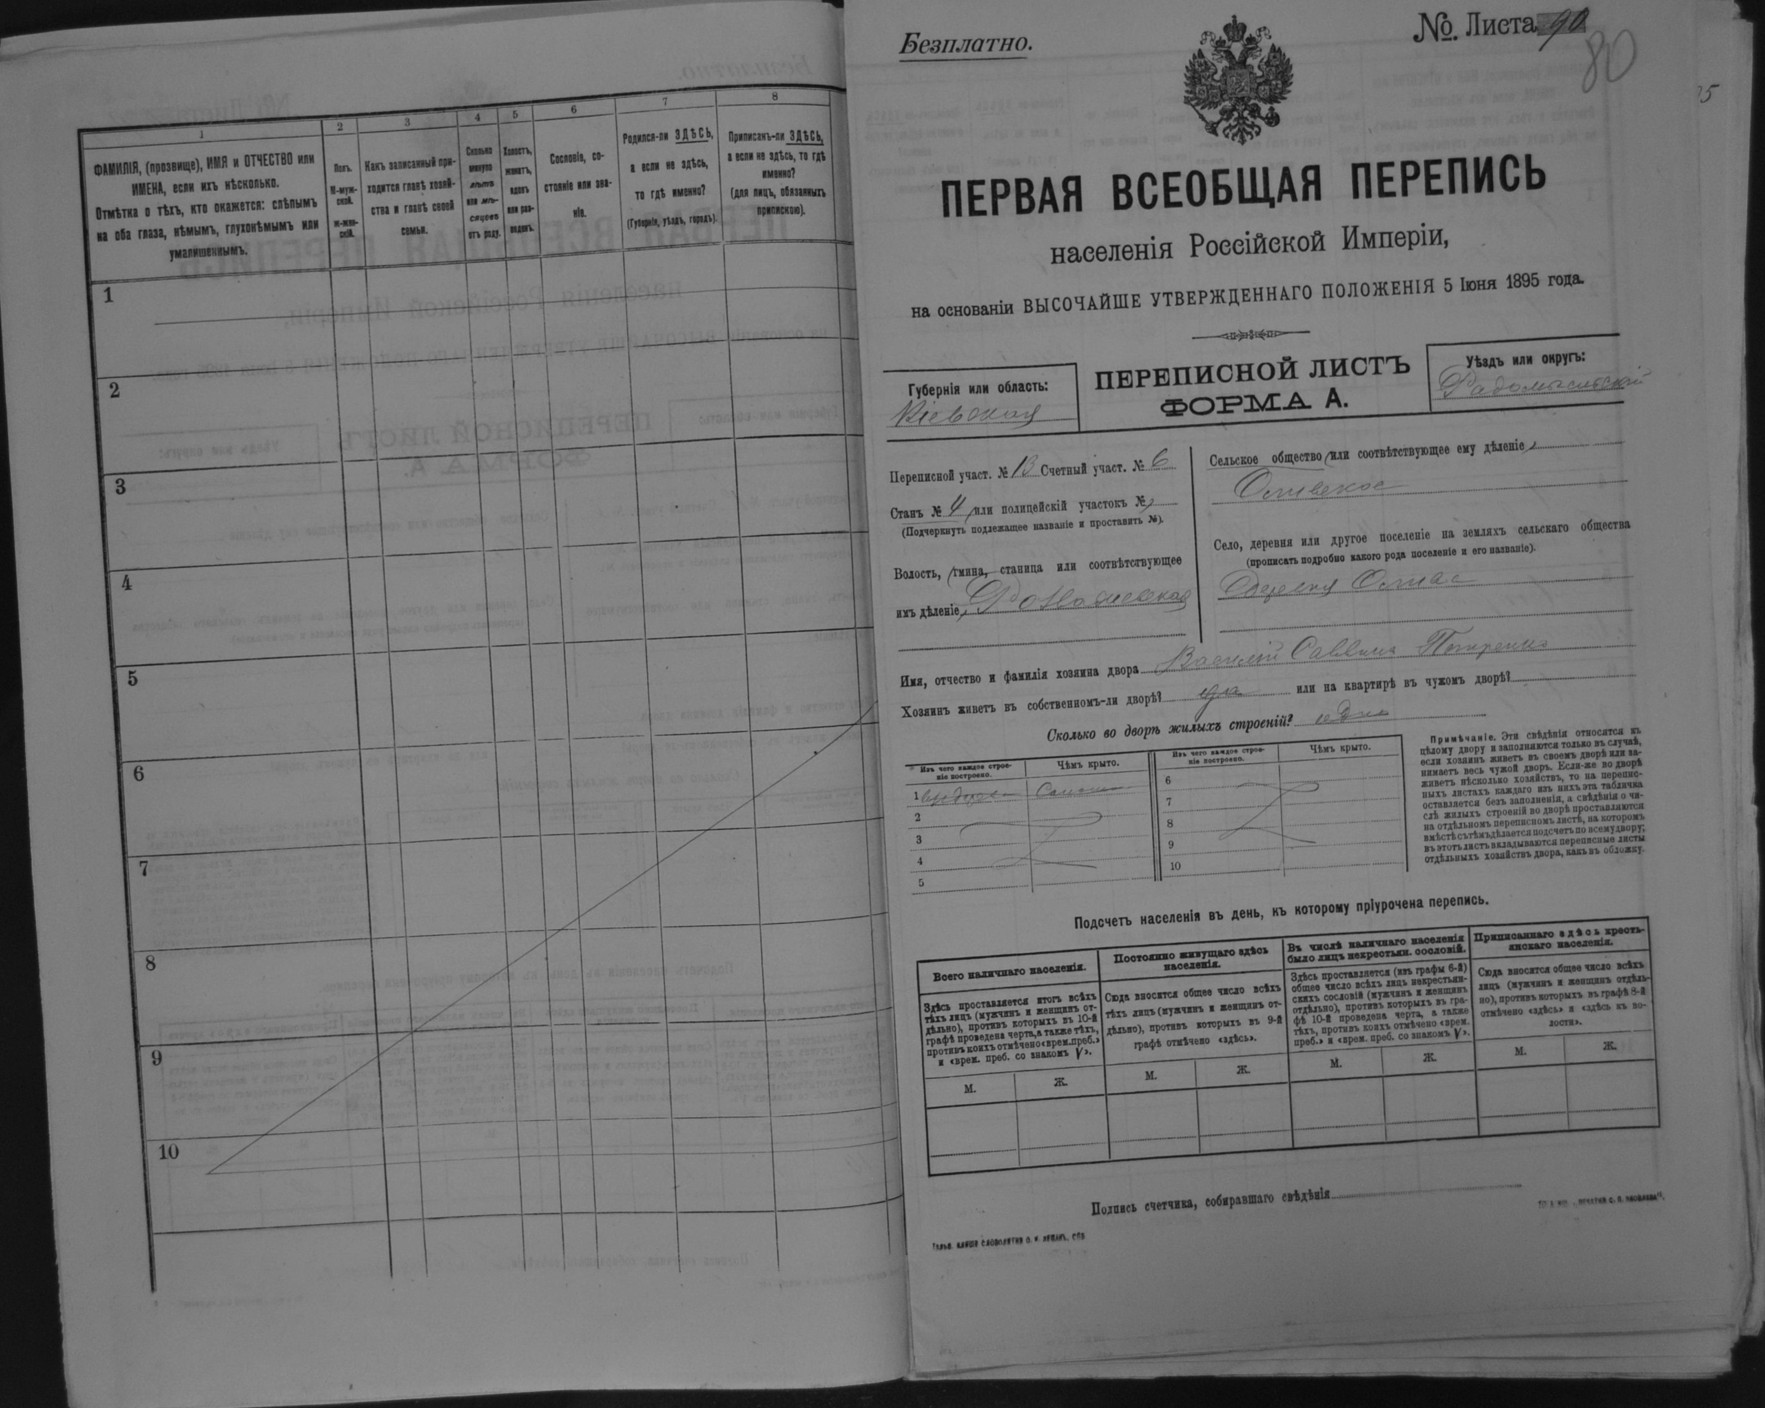 1
2
3
4
5
6
7
8
ФАМИЛІЯ, (прозвище), ИМЯ и ОТЧЕСТВО или
ИМЕНА, если ихъ нѣсколько.
Отмѣтка о тѣхъ, кто окажется: слѣпымъ
на оба глаза, нѣмымъ, глухонѣмымъ или
умалишеннымъ.
Полъ.
М-муж-
ской.
Ж-жен-
скій.
Какъ записанный при-
ходится главѣ хозяй-
ства и главѣ своей
семьи.
Сколько
минуло
лѣтъ
или мѣ-
сяцевъ
отъ роду.
Холостъ,
женатъ,
вдовъ
или раз-
веденъ.
Сословіе, со-
стояніе или зва-
ніе.
Родился-ли ЗДѢСЬ,
а если не здѣсь,
то гдѣ именно?
(Губернія, уѣздъ, городъ).
Приписанъ-ли ЗДѢСЬ,
а если не здѣсь, то гдѣ
именно?
(для лицъ, обязанныхъ
припискою).
1
2
3
4
5
6
7
8
9
10
Безплатно.
№. Листа 90
80
ПЕРВАЯ ВСЕОБЩАЯ ПЕРЕПИСЬ
населенія Россійской Имперіи,
на основаніи ВЫСОЧАЙШЕ УТВЕРЖДЕННАГО ПОЛОЖЕНІЯ 5 Іюня 1895 года.
Губернія или область:
Кіевская
ПЕРЕПИСНОЙ ЛИСТЪ
ФОРМА А.
Уѣздъ или округъ:
Радомысльскій
Переписной участ. № 13 Счетный участ. № 6
Станъ № 4 или полицейскій участокъ №
(Подчеркнуть подлежащее названіе и проставить №).
Волость, гмина, станица или соотвѣтствующее
имъ дѣленіе,
Сельское общество или соотвѣтствующее ему дѣленіе
Село, деревня или другое поселеніе на земляхъ сельскаго общества
(прописать подробно какого рода поселеніе и его названіе).
Деревня
Имя, отчество и фамилія хозяина двора Василій
Хозяинъ живетъ въ собственномъ-ли дворѣ? или на квартирѣ въ чужомъ дворѣ?
Сколько во дворѣ жилыхъ строеній?
Изъ чего каждое строе-
ніе построено.
Чѣмъ крыто.
1
2
3
4
5
Изъ чего каждое строе-
ніе построено.
Чѣмъ крыто.
6
7
8
9
10
Примѣчаніе. Эти свѣдѣнія относятся къ
цѣлому двору и заполняются только въ случаѣ,
если хозяинъ живетъ въ своемъ дворѣ или за-
нимаетъ весь чужой дворъ. Если-же во дворѣ
живетъ нѣсколько хозяйствъ, то на перепис-
ныхъ листахъ каждаго изъ нихъ эта табличка
оставляется безъ заполненія, а свѣдѣнія о чи-
слѣ жилыхъ строеній во дворѣ проставляются
на отдѣльномъ переписномъ листѣ, на которомъ
вмѣстѣ съ тѣмъ дѣлается подсчетъ по всему двору;
въ этотъ листъ вкладываются переписные листы
отдѣльныхъ хозяйствъ двора, какъ въ обложку.
Подсчетъ населенія въ день, къ которому пріурочена перепись.
Всего наличнаго населенія.
Здѣсь проставляется итогъ всѣхъ
тѣхъ лицъ (мужчинъ и женщинъ от-
дѣльно), противъ которыхъ въ 10-й
графѣ проведена черта, а также тѣхъ,
противъ коихъ отмѣчено «врем. преб.»
и «врем. преб. со знакомъ V».
М. Ж.
Постоянно живущаго здѣсь
населенія.
Сюда вносится общее число всѣхъ
тѣхъ лицъ (мужчинъ и женщинъ от-
дѣльно), противъ которыхъ въ 9-й
графѣ отмѣчено «здѣсь».
М. Ж.
Въ числѣ наличнаго населенія
было лицъ некрестьян. сословій.
Здѣсь проставляется (изъ графы 6-й)
общее число всѣхъ лицъ некрестьян-
скихъ сословій (мужчинъ и женщинъ
отдѣльно), противъ которыхъ въ гра-
фѣ 10-й проведена черта, а также
тѣхъ, противъ коихъ отмѣчено «врем.
преб.» и «врем. преб. со знакомъ V».
М. Ж.
Приписаннаго здѣсь кресть-
янскаго населенія.
Сюда вносится общее число всѣхъ
лицъ (мужчинъ и женщинъ отдѣль-
но), противъ которыхъ въ графѣ 8-й
отмѣчено «здѣсь» и «здѣсь въ во-
лости».
М. Ж.
Подпись счетчика, собиравшаго свѣдѣнія